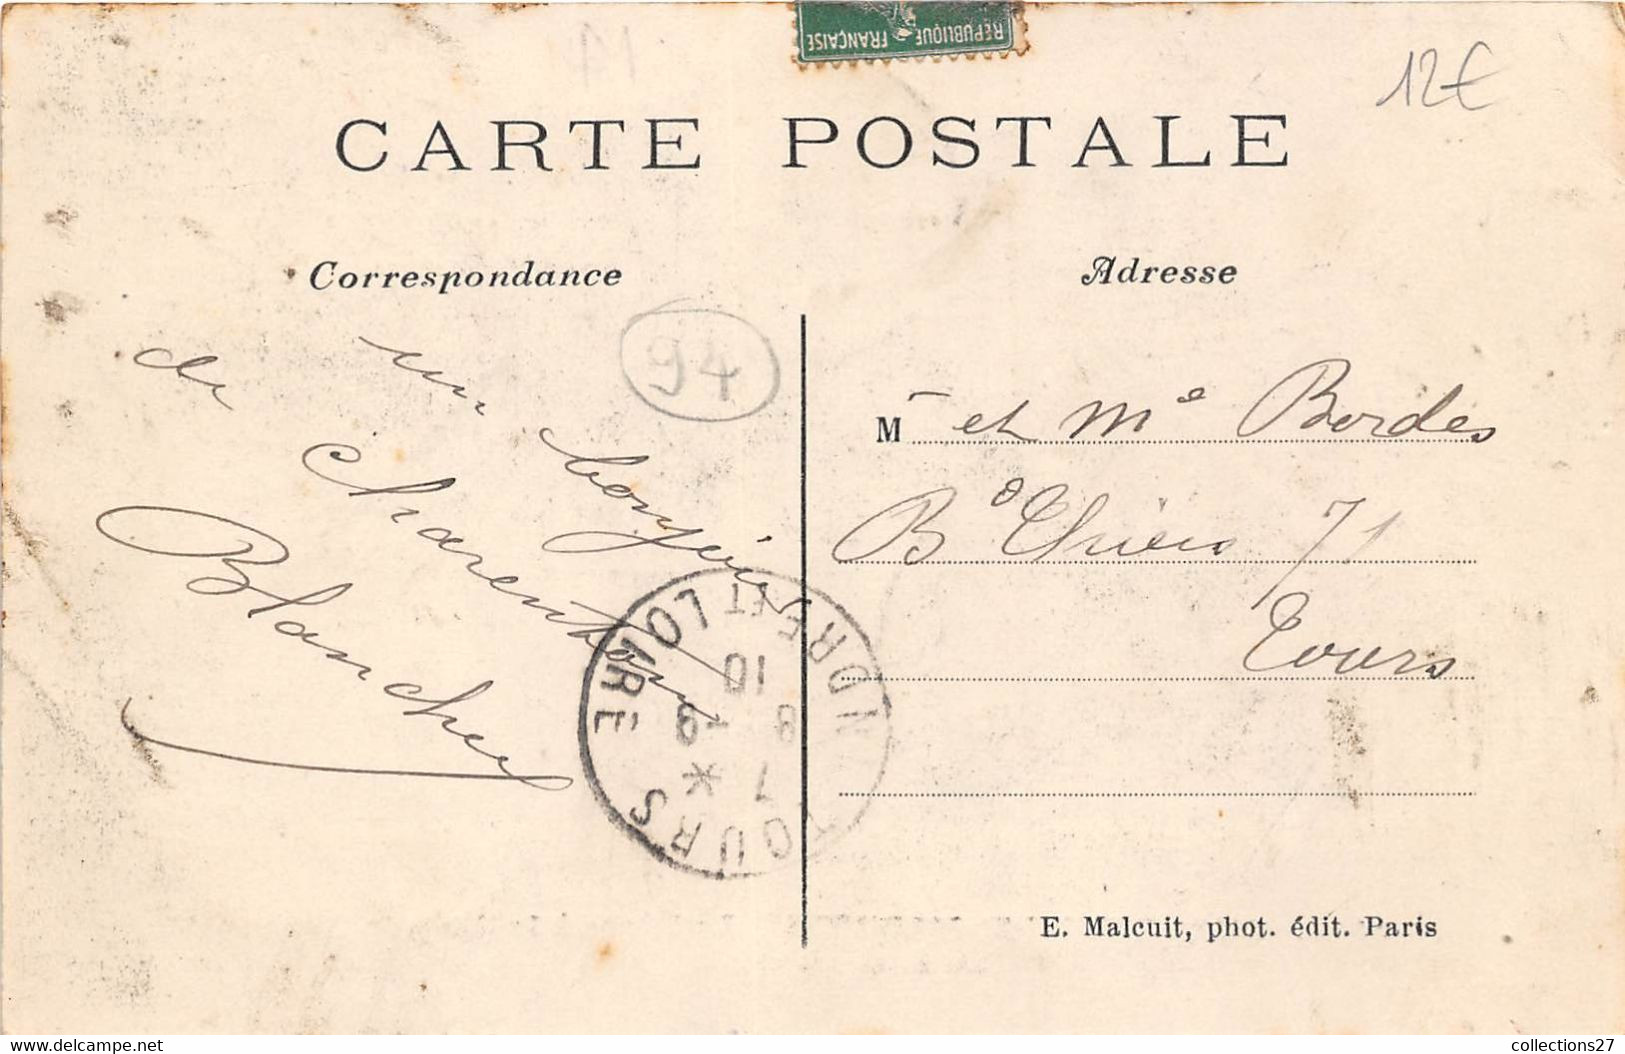 RÉPUBLIQUE FRANÇAISE
12€
CARTE POSTALE
Correspondance
Adresse
94
un bonjour
de Charenton
Blanche
M et Me Bordes
Bd Thiers 71
Tours
TOURS * INDRE ET LOIRE
7 * 
8 - 8
10
E. Malcuit, phot. édit. Paris
www.delcampe.net
collections27